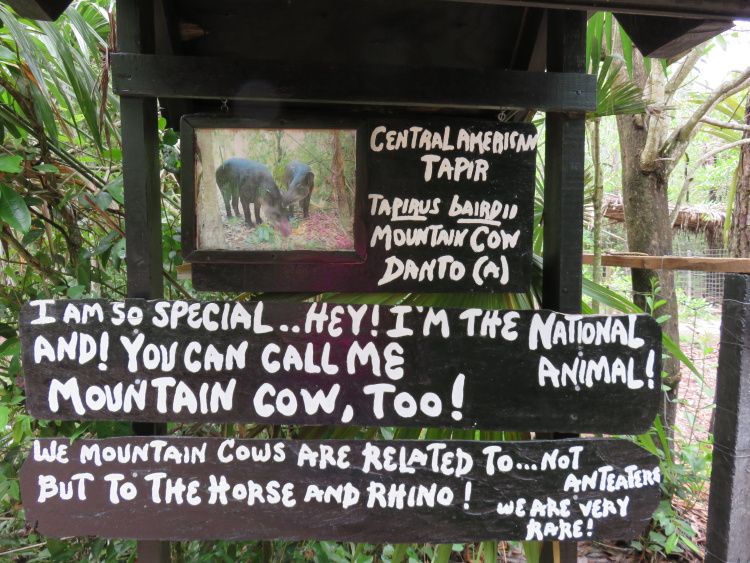 CENTRAL AMERICAN
TAPIR
TAPIRUS BAIRDII
MOUNTAIN COW
DANTO (A)
I AM SO SPECIAL...HEY! I'M THE NATIONAL
ANIMAL!
AND! YOU CAN CALL ME
MOUNTAIN COW, TOO!
WE MOUNTAIN COWS ARE RELATED TO...NOT
ANTEATERS
BUT TO THE HORSE AND RHINO!
WE ARE VERY
RARE!